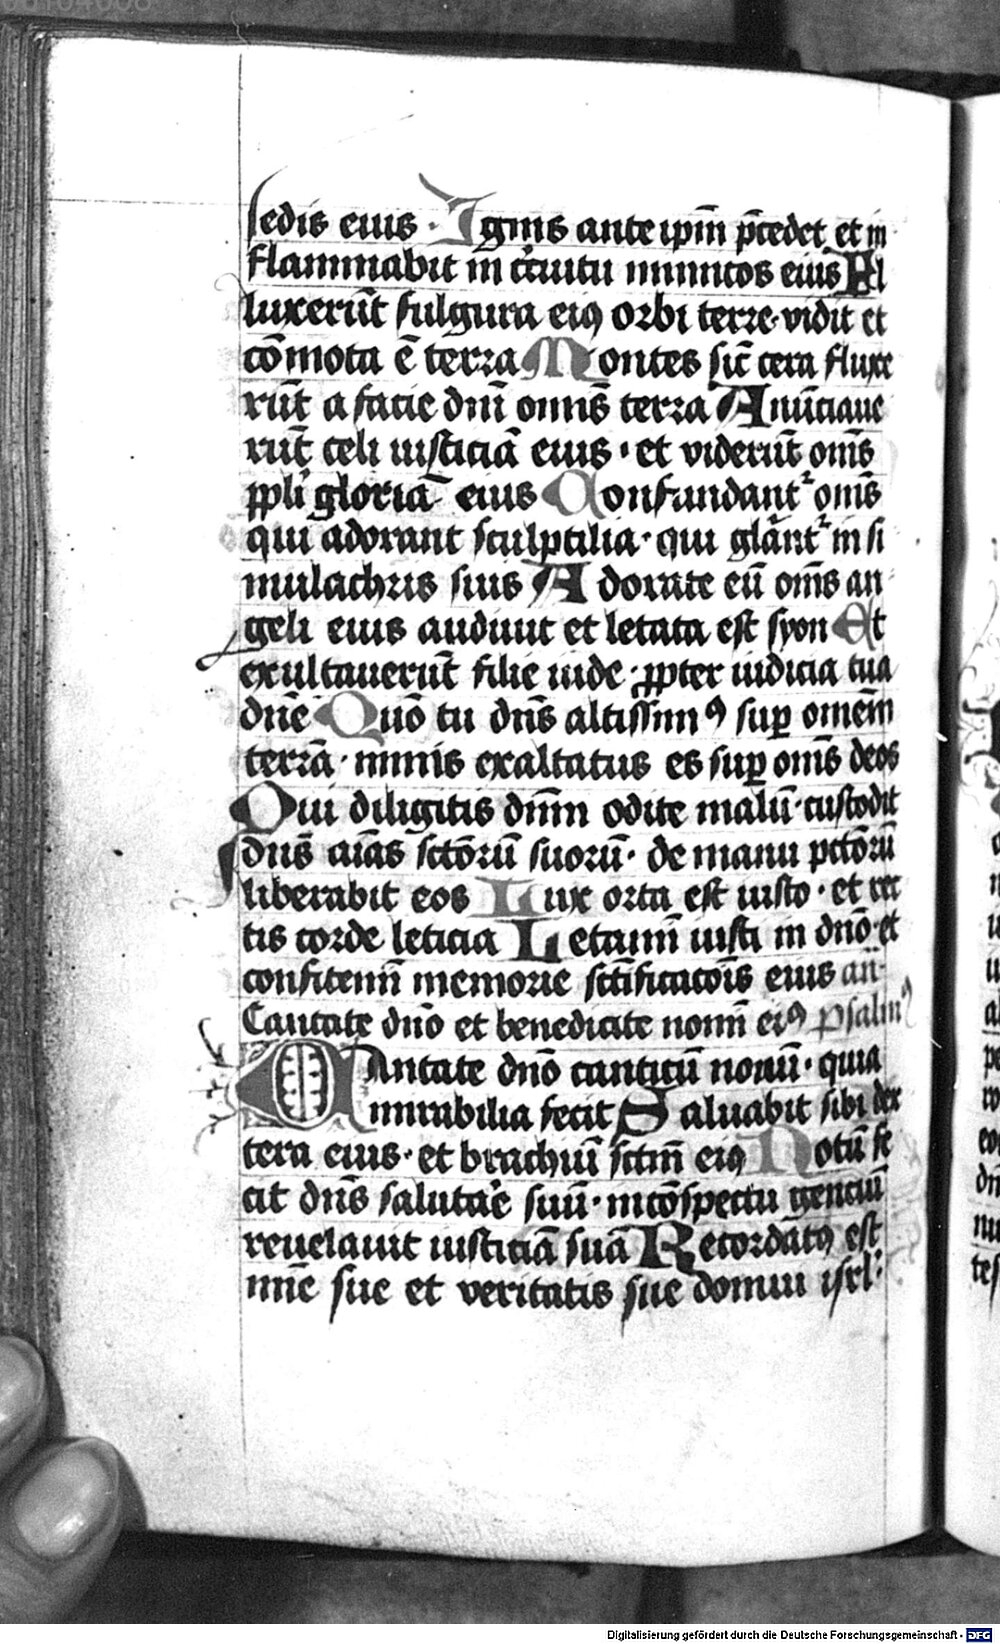 sedis eius · Ignis ante ipm̄ p̄cedet et in
flammabit in cr̄cuitu inimicos eius Al
luxerūt fulgura eiꝰ orbi terre · vidit et
cōmota ē terra Montes sic̄ cera fluxe
rūt a facie dnī omnis̄ terra Anūciaue
rūt celi iusticiā eius · et viderūt oms̄
ppl̄i gloriā eius Confundant᷑ oms̄
qui adorant sculptilia · qui glānt᷑ in si
mulachris suis Adorate eū oms̄ an
geli eius audiuit et letata est syon Et
exultauerūt filie iude · ꝓpter iudicia tua
dnē Quō tu dns̄ altissimꝰ suꝑ omēm
terrā · nimis exaltatus es suꝑ oms̄ deos
Qui diligitis dnm̄ odite malū · custodit
dns̄ aīas sctōrū suorū · de manu pctōrū
liberabit eos Lux orta est iusto · et rec
tis corde leticia Letamī iusti in dnō · et
confitemī memorie sctīficacōis eius an̄
Cantate dnō et benedicite nomī eiꝰ psalmꝰ
CAntate dnō canticū nouū · quia
mirabilia fecit Saluabit sibi dex
tera eius · et brachiū sctm̄ eiꝰ Notū fe
cit dns̄ salutar̄e suū · in cōspectu genciū
reuelauit iusticiā suā Recordātꝰ est
mīe sue et veritatis sue domui isrl ·
Digitalisierung gefördert durch die Deutsche Forschungsgemeinschaft - DFG